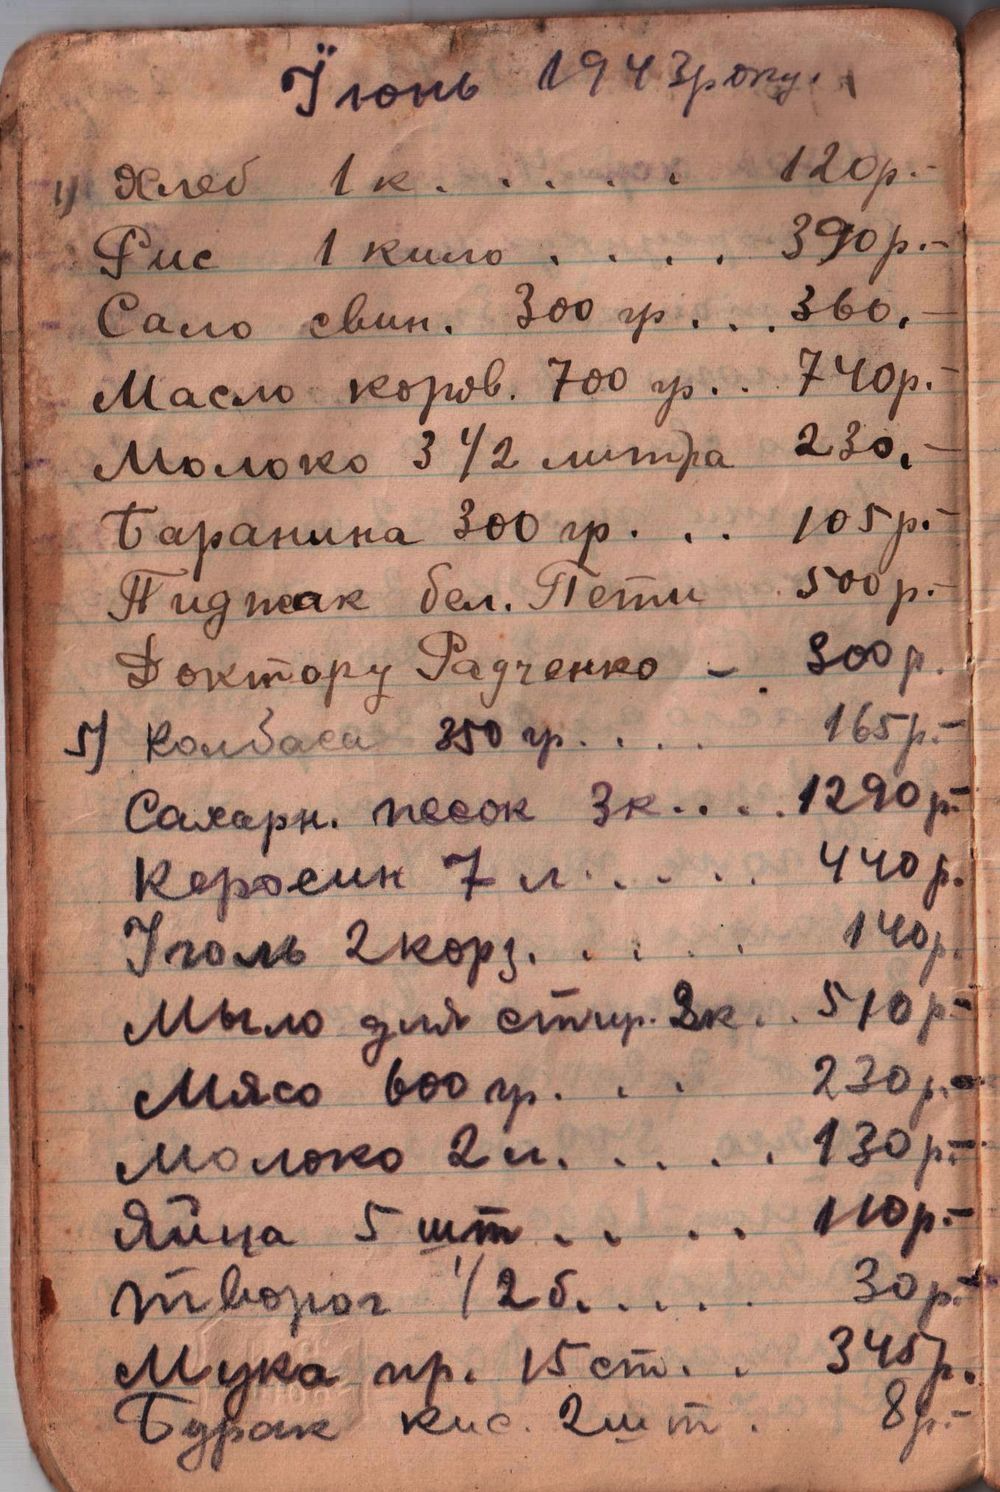 Їюнь 1943 року.
1) Хлеб 1 к. . . . . . 120р.-
Рис 1 кило . . . . 390р.-
Сало свин. 300 гр . . . 360.-
Масло коров. 700 гр. . . 740р.-
Молоко 3 1/2 литра 230.-
Баранина 300 гр. . . 105р.-
Пиджак бел. Пети 500р.-
Доктору Радченко - . 300р.
5) Колбаса 350 гр. . . . 165р.-
Сахарн. песок 3к. . . . 1290р-
Керосин 7 л. . . . . 440р.
Уголь 2 корз. . . . . 140р.
Мыло для стир. 3к. . . 510р-
Мясо 600 гр. . . . 230р.-
Молоко 2 л. . . . . 130р.-
Яйца 5 шт . . . . 110р.-
Творог 1/2 б. . . . . 30р.-
Мука пр. 15 ст. . . 345р.
Бурак кис. 2 шт . 8р.-